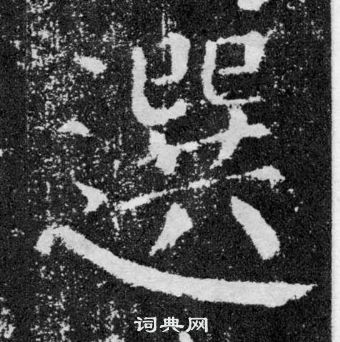 選
词典网